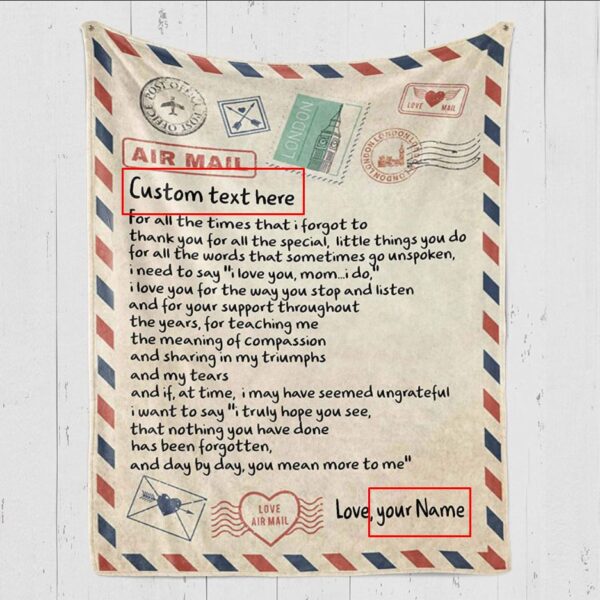 POST OFFICE POST OFFICE
LONDON
LOVE MAIL
LONDON LONDON LONDON
AIR MAIL
Custom text here
For all the times that i forgot to
thank you for all the special, little things you do
for all the words that sometimes go unspoken,
i need to say "i love you, mom...i do,"
i love you for the way you stop and listen
and for your support throughout
the years, for teaching me
the meaning of compassion
and sharing in my triumphs
and my tears
and if, at time, i may have seemed ungrateful
i want to say "i truly hope you see,
that nothing you have done
has been forgotten,
and day by day, you mean more to me"
LOVE
AIR MAIL
Love, your Name